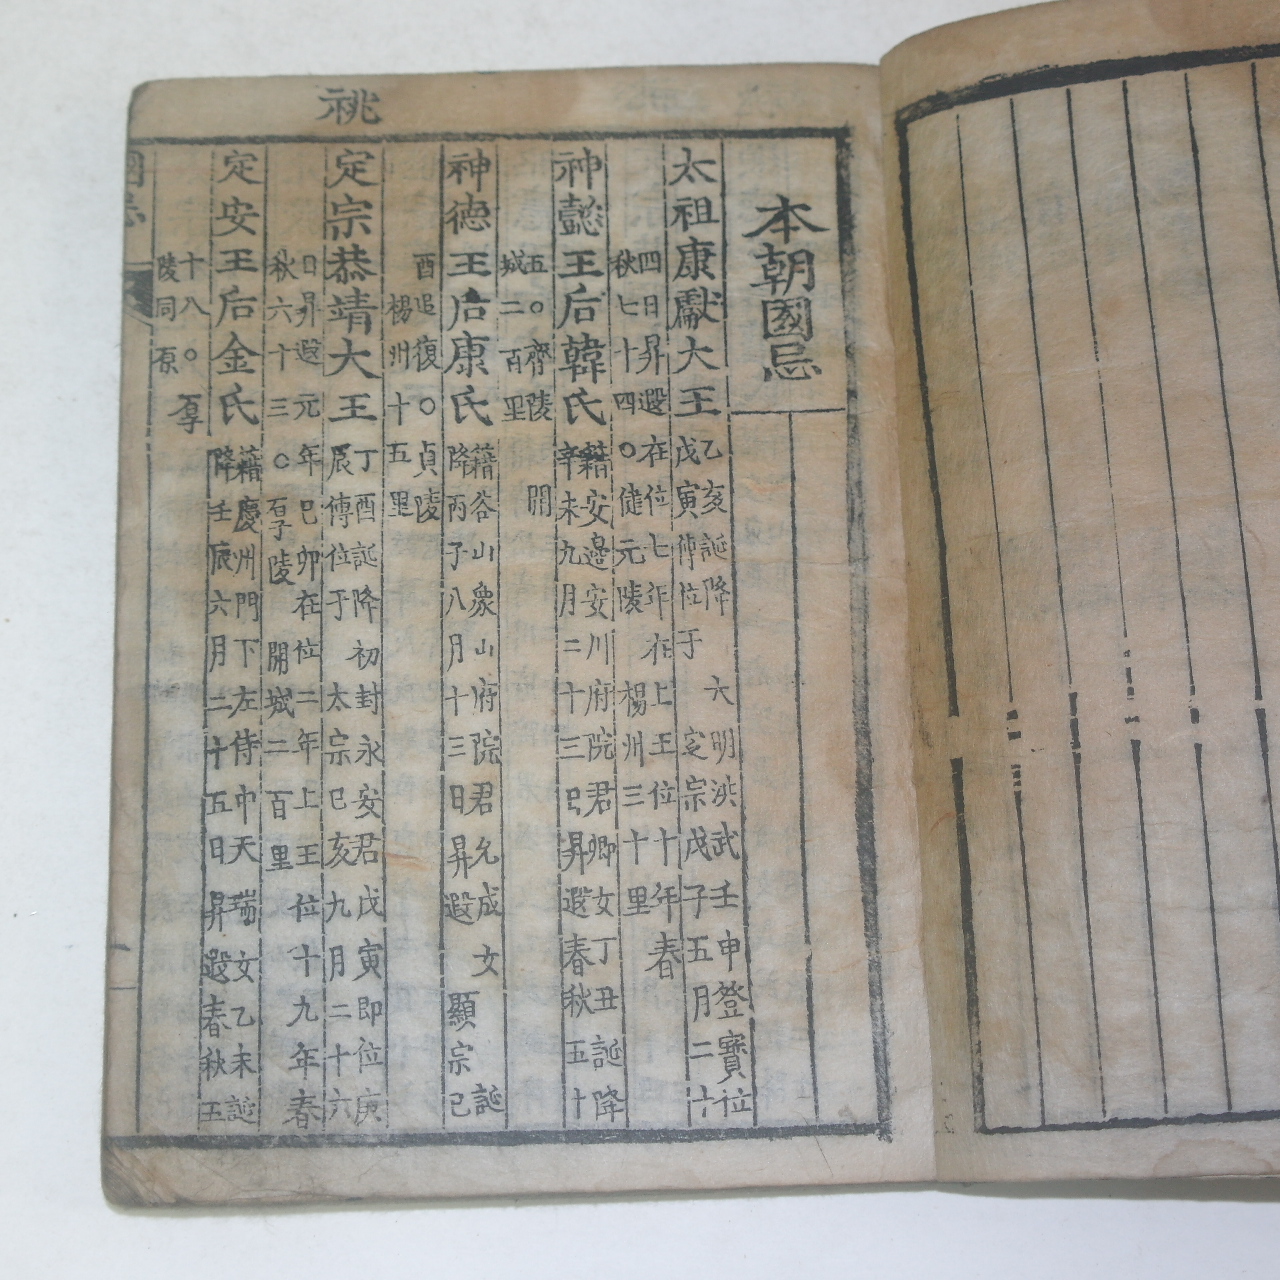 祧
本朝國忌
太祖康獻大王
乙亥誕降 大明洪武壬申登寶位
戊寅傳位于 定宗戊子五月二十
四日昇遐在位七年在上王位十年春
秋七十四○健元陵 楊州三十里
神懿王后韓氏
籍安邊安川府院君卿女丁丑誕降
辛未九月二十三日昇遐春秋五十
五○齊陵 開
城二百里
神德王后康氏
籍谷山象山府院君允成女 誕
降丙子八月十三日昇遐 顯宗己
酉追復○貞陵
楊州十五里
定宗恭靖大王
丁酉誕降初封永安君戊寅即位庚
辰傳位于 太宗己亥九月二十六
日昇遐元年己卯在位二年上王位十九年春
秋六十三○厚陵 開城二百里
定安王后金氏
籍慶州門下左侍中天瑞女乙未誕
降壬辰六月二十五日昇遐春秋五
十八○厚
陵同原
國忌
一